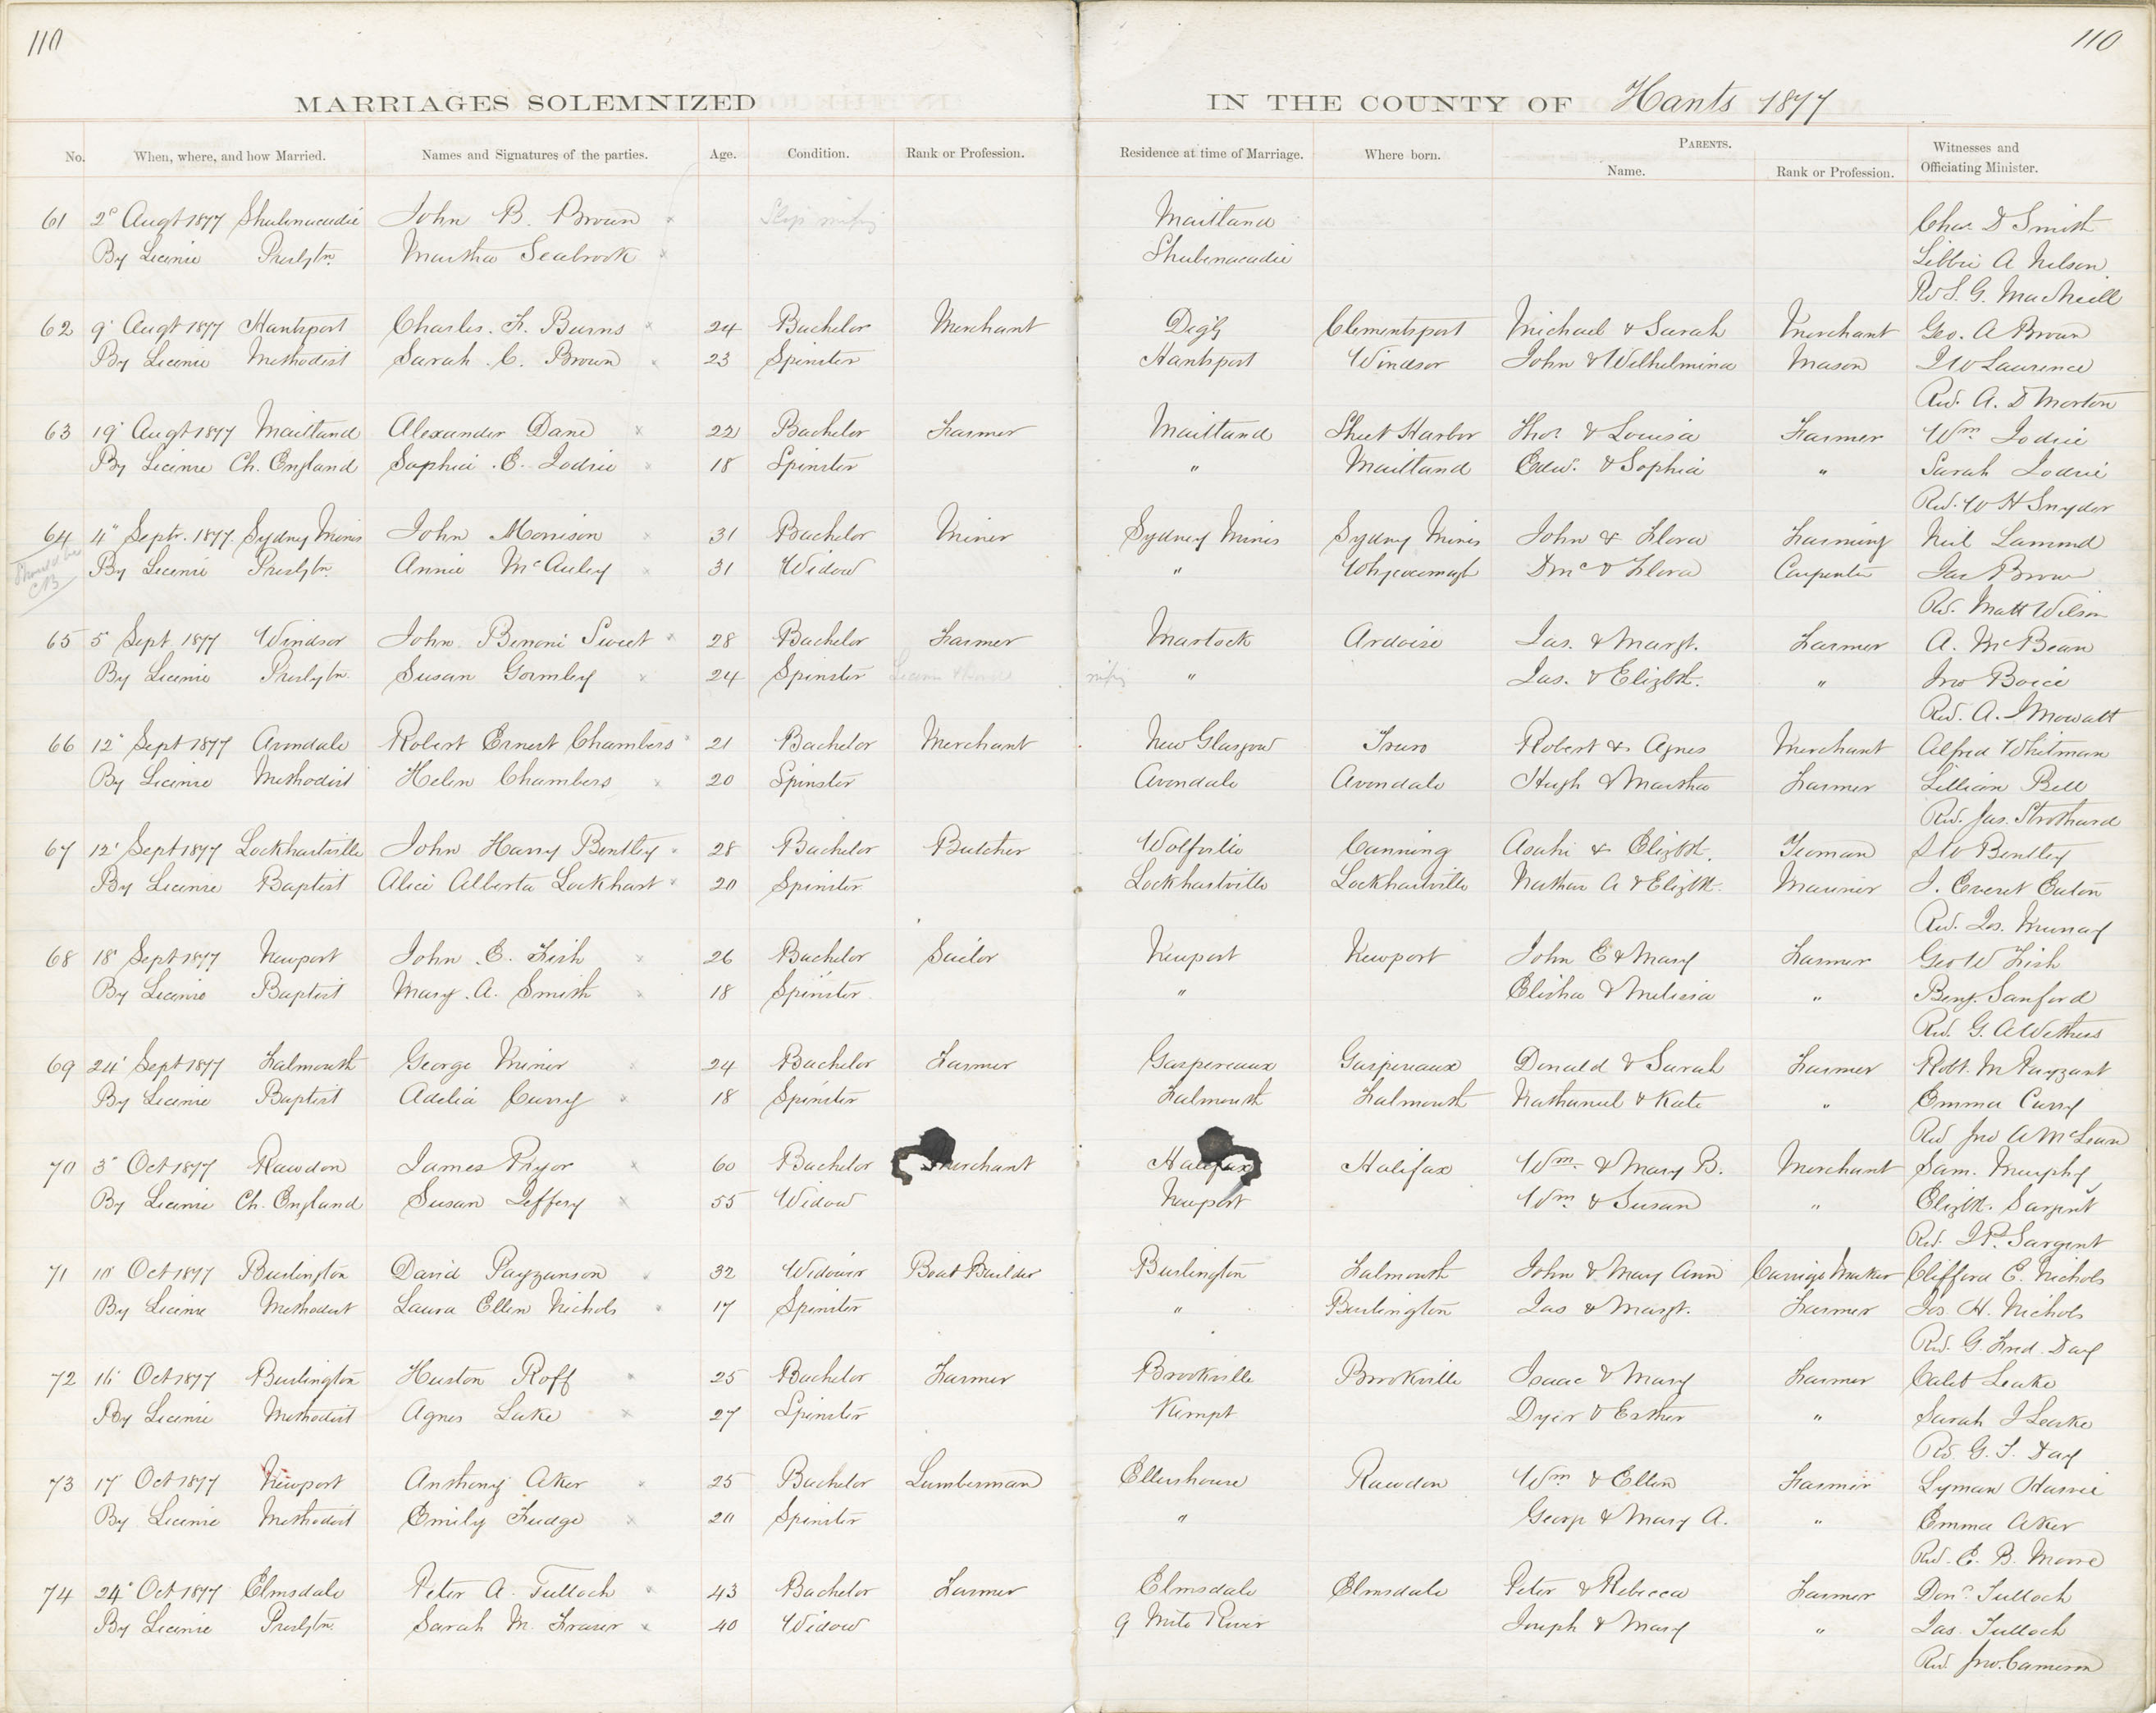 110
110
MARRIAGES SOLEMNIZED
IN THE COUNTY OF Hants 1877
No. When, where, and how Married. Names and Signatures of the parties. Age. Condition. Rank or Profession. Residence at time of Marriage. Where born. PARENTS. Name. Rank or Profession. Witnesses and Officiating Minister.
61 2d Augt 1877 Shubenacadie John B. Brown Maitland Chas. D Smith
By License Presbytn. Martha Seabrook Shubenacadie Libbie A Nelson
Rev J. G. MacNeill
62 9' Augt 1877 Hantsport Charles. F. Burns 24 Bachelor Merchant Digby Clementsport Michael & Sarah Merchant Geo. A Brown
By License Methodist Sarah. C. Brown 23 Spinster Hantsport Windsor John & Wilhelmina Mason J W Laurence
Rev. A. D Morton
63 19' Augt 1877 Maitland Alexander Dane 22 Bachelor Farmer Maitland Sheet Harbor Thos. & Louisa Farmer Wm. Lodrie
By License Ch. England Sophia .E. Lodrie 18 Spinster " Maitland Edw. & Sophia " Sarah Lodrie
Rev. W H Snyder
64 4" Sept. 1877. Sydney Mines John Morrison 31 Bachelor Miner Sydney Mines Sydney Mines John & Flora Farming Neil Lamond
By License Presbytn. Annie McAuley 31 Widow " Whycocomagh Dmc & Flora Carpenter Jas Brown
CB
Rev. Matt Wilson
65 5' Sept 1877 Windsor John Benoni Sweet 28 Bachelor Farmer Martock Ardoise Jas. & Margt. Farmer A. McBean
By License Presbytn. Susan Gormley 24 Spinster " Jas. & Elizbt. " Jno Boice
Rev. A. J Mowatt
66 12' Sept 1877 Avondale Robert Ernest Chambers 21 Bachelor Merchant New Glasgow Truro Robert & Agnes Merchant Alfred Whitman
By License Methodist Helen Chambers 20 Spinster Avondale Avondale Hugh & Martha Farmer Lillian Bell
Rev. Jas. Strothard
67 12' Sept 1877 Lockhartville John Harry Bentley 28 Bachelor Butcher Wolfville Canning Asahi & Elizbt. Yeoman S W Bentley
By License Baptist Alice Alberta Lockhart 20 Spinster Lockhartville Lockhartville Nathan A & Elizbt. Mariner J. Everet Eaton
Rev. Jos. Murray
68 18' Sept 1877 Newport John .E. Fish 26 Bachelor Sailor Newport Newport John E & Mary Farmer Geo W Fish
By License Baptist Mary. A. Smith 18 Spinster " Elisha & Melissa " Benj. Sanford
Rev. G. A Wethers
69 24' Sept 1877 Falmouth George Miner 24 Bachelor Farmer Gaspereaux Gaspereaux Donald & Sarah Farmer Robt. M Payzant
By License Baptist Adelia Curry 18 Spinster Falmouth Falmouth Nathaniel & Kate " Emma Curry
Rev Jno A McLean
70 3' Oct 1877 Rawdon James Pryor 60 Bachelor Merchant Halifax Halifax Wm. & Mary B. Merchant Sam. Murphy
By License Ch. England Susan Jeffery 55 Widow Newport Wm. & Susan " Elizbt. Sargent
Rev. J P. Sargent
71 10' Oct 1877 Burlington David Payzanson 32 Widower Boat Builder Burlington Falmouth John & Mary Ann Carriage Maker Clifford E. Nichols
By License Methodist Laura Ellen Nichols 17 Spinster " Burlington Jas & Margt. Farmer Jos. H. Nichols
Rev. G. Fred. Day
72 16' Oct 1877 Burlington Huston Roff 25 Bachelor Farmer Brookville Brookville Isaac & Mary Farmer Caleb Leake
By License Methodist Agnes Lake 27 Spinster Kempt Dyer & Esther " Sarah J Leake
Rev G. F. Day
73 17' Oct 1877 Newport Anthony Aker 25 Bachelor Lumberman Ellershouse Rawdon Wm & Ellen Farmer Lyman Harvie
By License Methodist Emily Fudge 20 Spinster " George & Mary A. " Emma Aker
Rev. E. B. Moore
74 24' Oct 1877 Elmsdale Peter A. Tulloch 43 Bachelor Farmer Elmsdale Elmsdale Peter & Rebecca Farmer Dond. Tulloch
By License Presbytn. Sarah M. Fraser 40 Widow 9 Mile River Joseph & Mary " Jas. Tulloch
Rev. Jno. Cameron